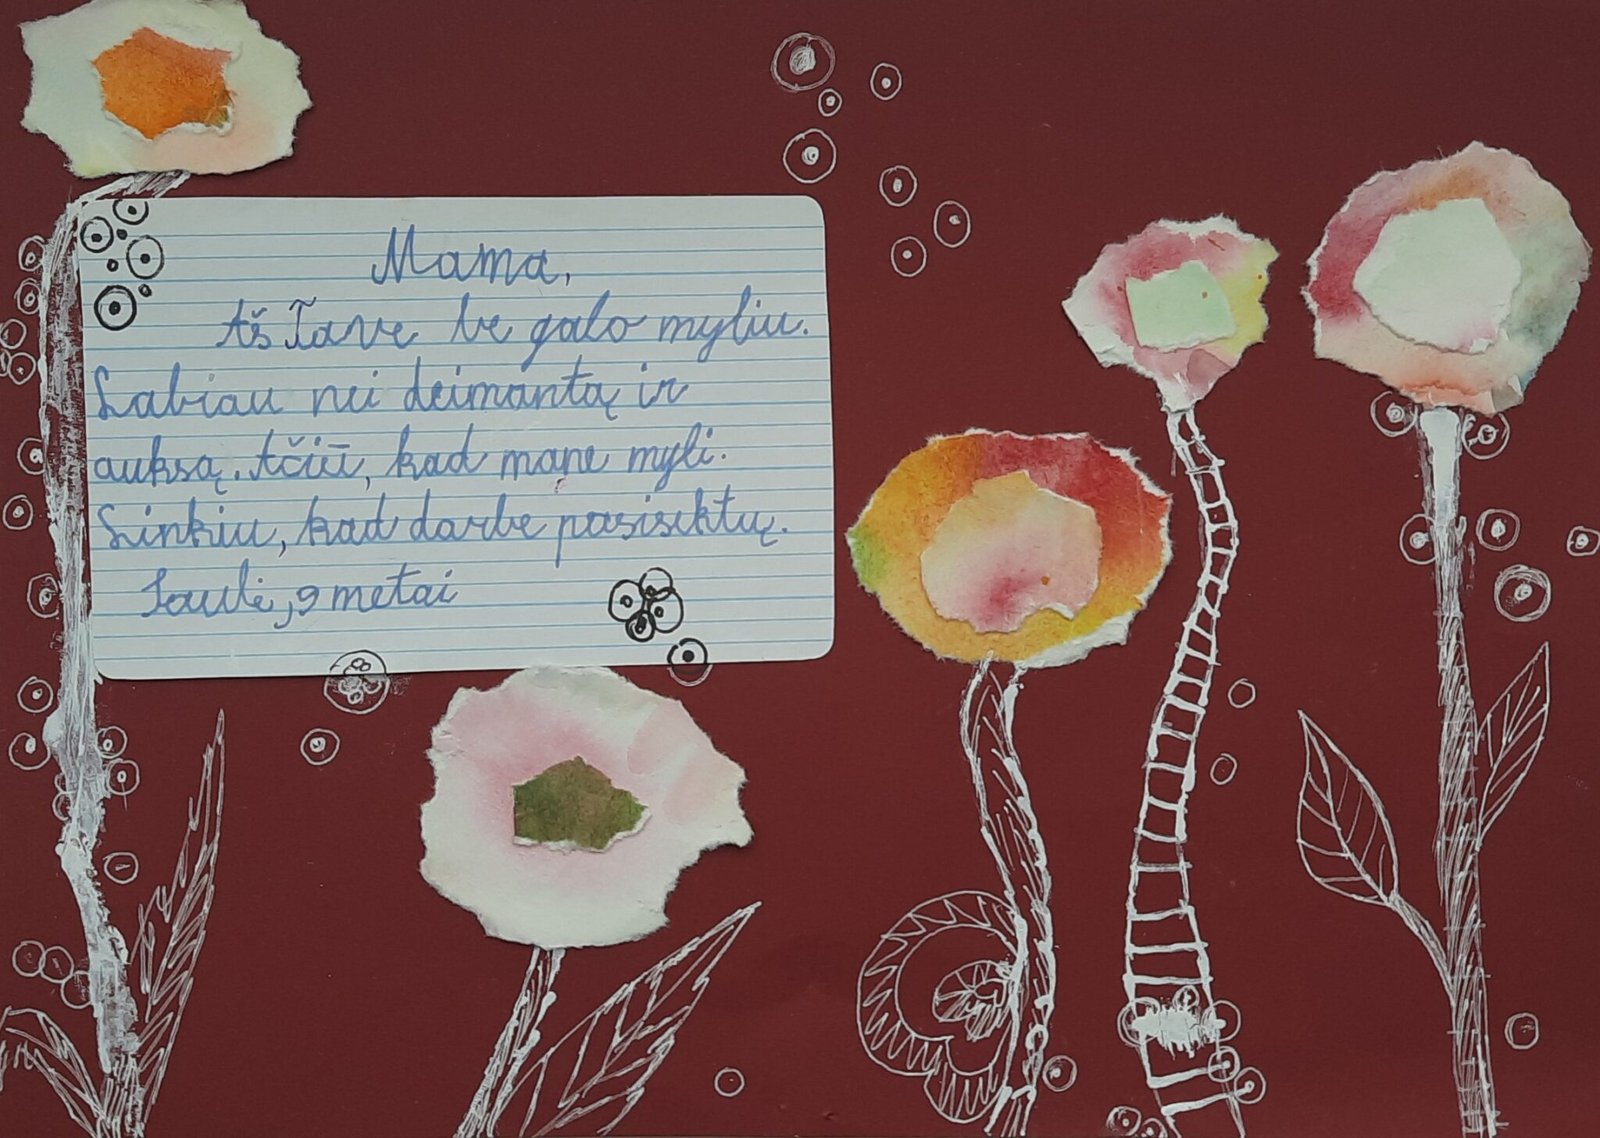 Mama,
Aš Tave be galo myliu.
Labiau nei deimantą ir
auksą. Ačiū, kad mane myli.
Linkiu, kad darbe pasisektų.
Saulė, 9 metai